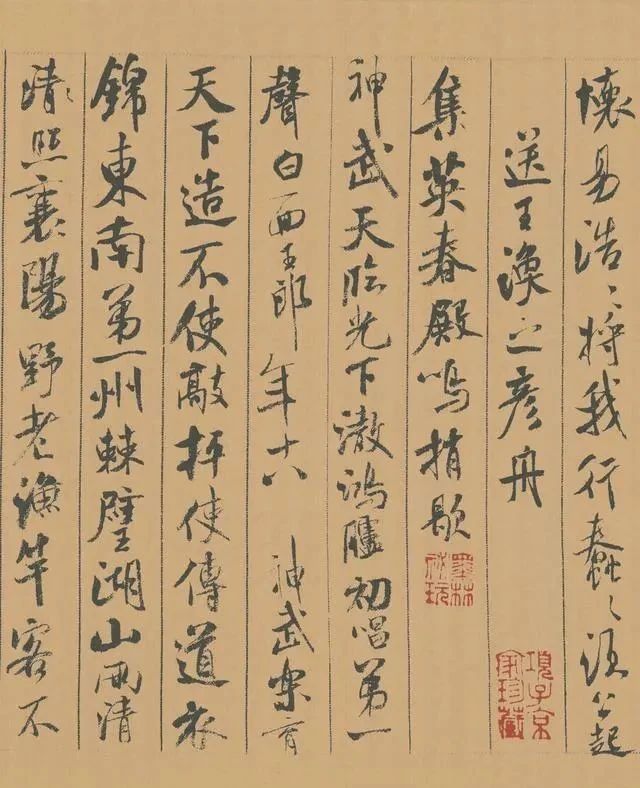 懷易浩〻將我行蠢〻須公起
送王渙之彥舟
項子京家珍藏
集英春殿鳴捎歇
墨林祕玩
神武天臨光下澈鴻臚初唱第一
聲白面玉郎年十八 神武樂育
天下造不使敲枰使傳道衣
錦東南第一州棘璧湖山兩清
清照襄陽野老漁竿客不